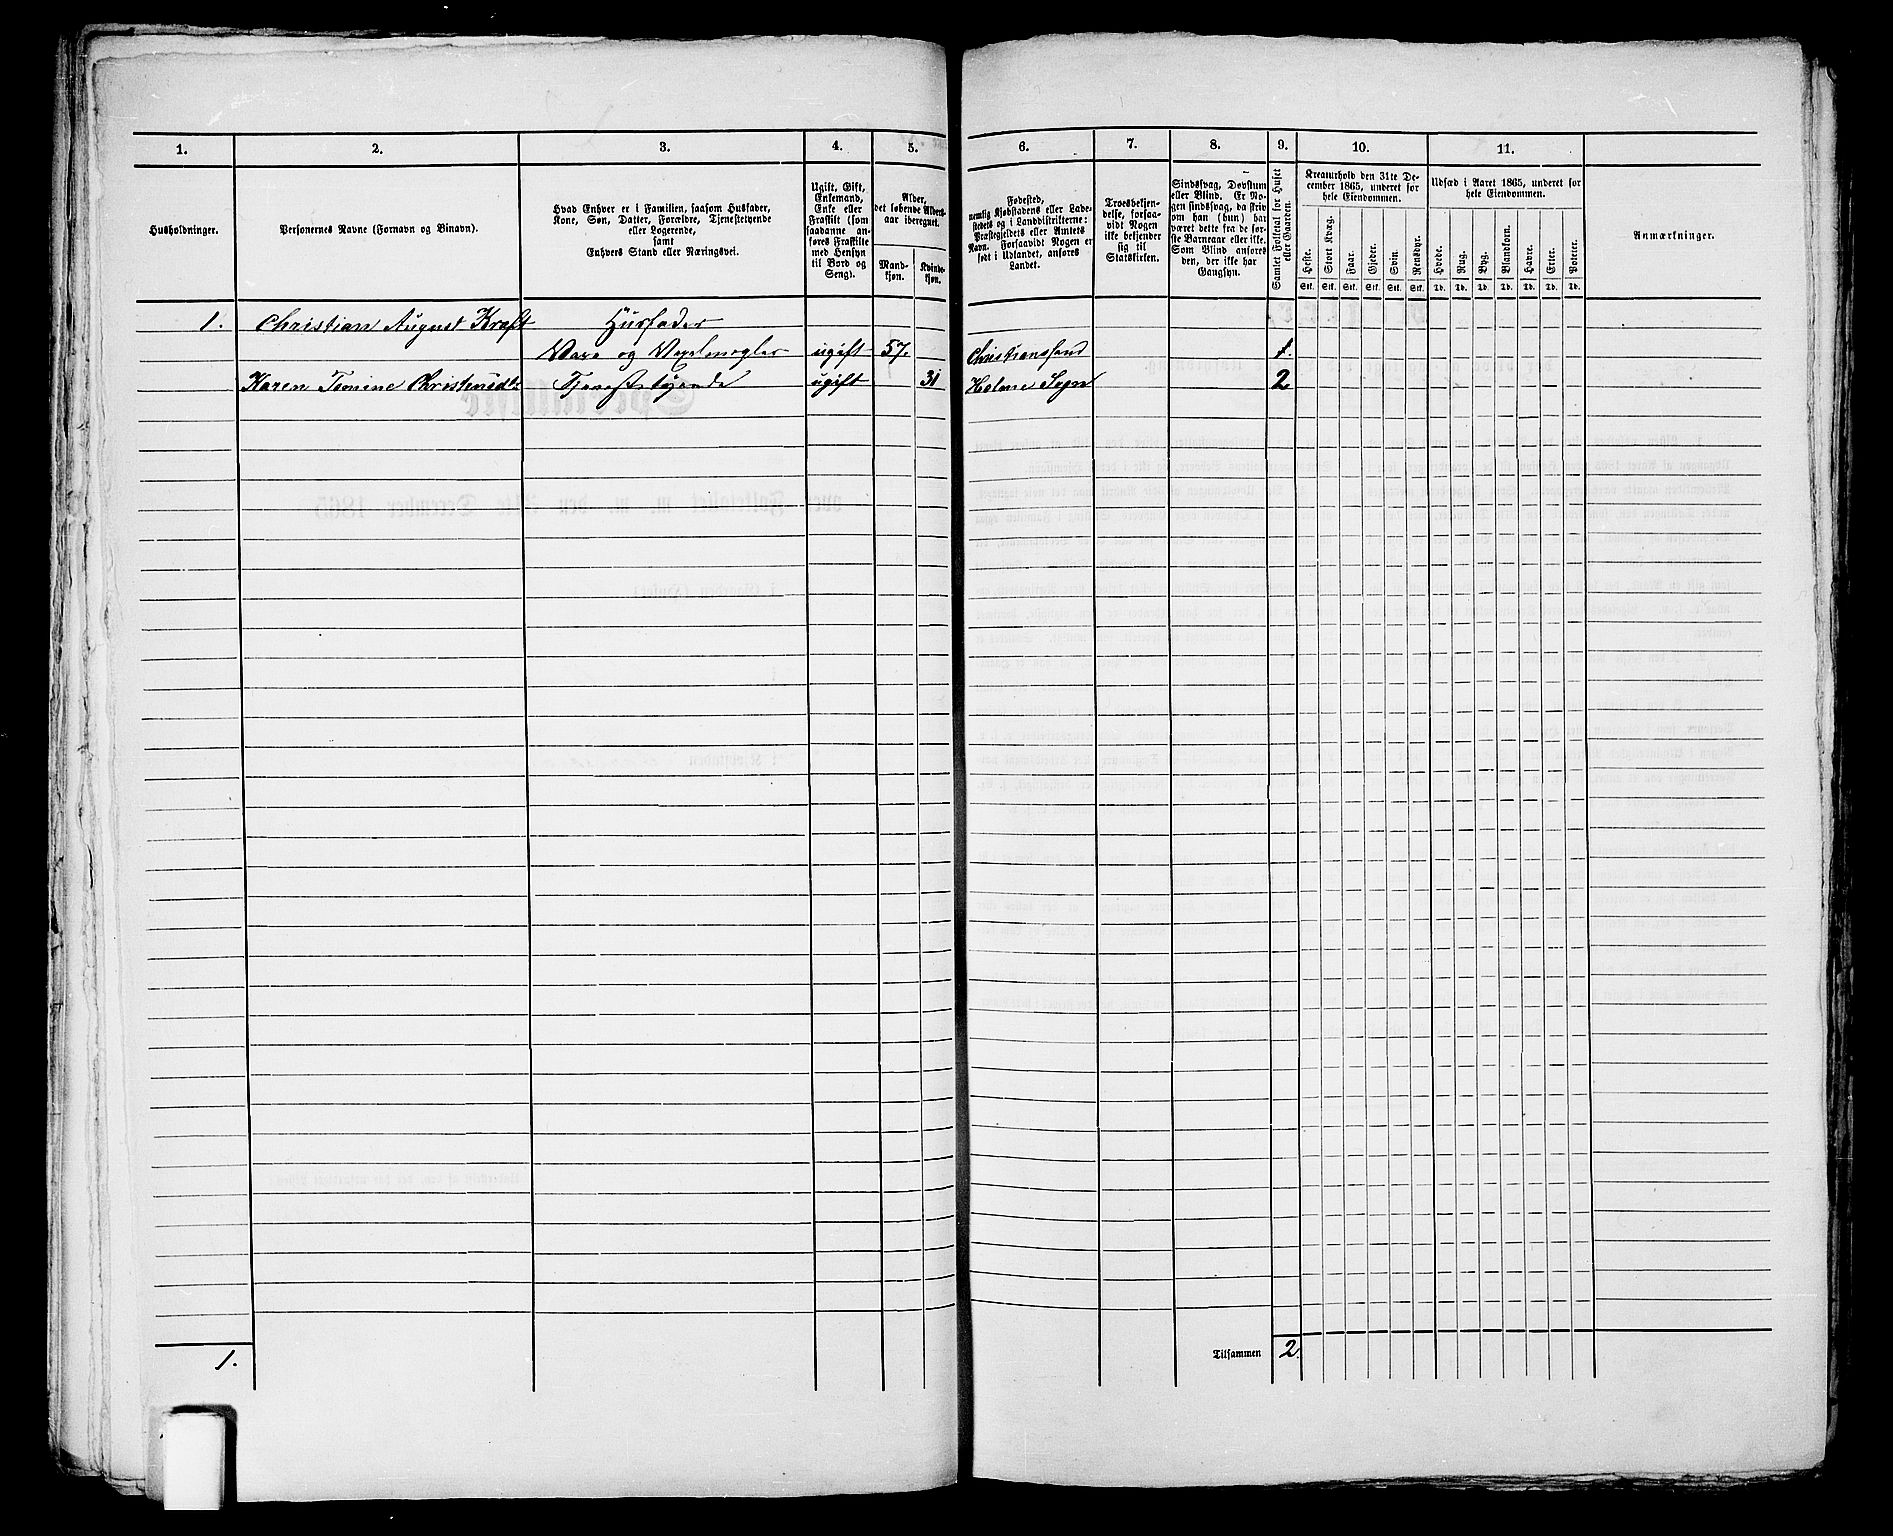 1. 2. 3. 4. 5. 6. 7. 8. 9. 10. 11.
Husholdninger.
Personernes Navne (Fornavn og Binavn).
Hvad Enhver er i Familien, saasom Husfader,
Kone, Søn, Datter, Forældre, Tjenestetyende
eller Logerende,
samt
Enhvers Stand eller Næringsvei.
Ugift, Gift,
Enkemand,
Enke eller
Fraskilt (som
saadanne an-
føres Fraskilte
med Hensyn
til Bord og
Seng).
Alder,
det løbende Alders-
aar iberegnet.
Mand-
kjøn.
Kvinde-
kjøn.
Fødested,
nemlig Kjøbstadens eller Lade-
stedets og i Landdistrikterne:
Præstegjeldets eller Amtets
Navn. Forsaavidt Nogen er
født i Udlandet, anføres
Landet.
Troesbekjen-
delse, forsaa-
vidt Nogen
ikke bekjender
sig til
Statskirken.
Sindssvag, Døvstum
eller Blind. Er No-
gen sindssvag, da skriv
om han (hun) har
været dette fra de før-
ste Barneaar eller ikke.
Som Blind anføres
den, der ikke har
Gangsyn.
Samlet Folketal for Huset
eller Gaarden.
Kreaturhold den 31te De-
cember 1865, underet for
hele Eiendommen.
Heste. Stort Kvæg. Faar. Gjeder. Svin. Rensdyr.
Stk. Stk. Stk. Stk. Stk. Stk.
Udsæd i Aaret 1865, underet for
hele Eiendommen.
Hvede. Rug. Byg. Blandkorn. Havre. Erter. Poteter.
Td. Td. Td. Td. Td. Td. Td.
Anmærkninger.
1. Christian August Kraft Husfader
Vare og Vexelmægler ugift 57. Christianssand 1.
Karen Tomine Christensdtr Tjenestetyende ugift 31 Holme Sogn 2
1. Tilsammen 2.